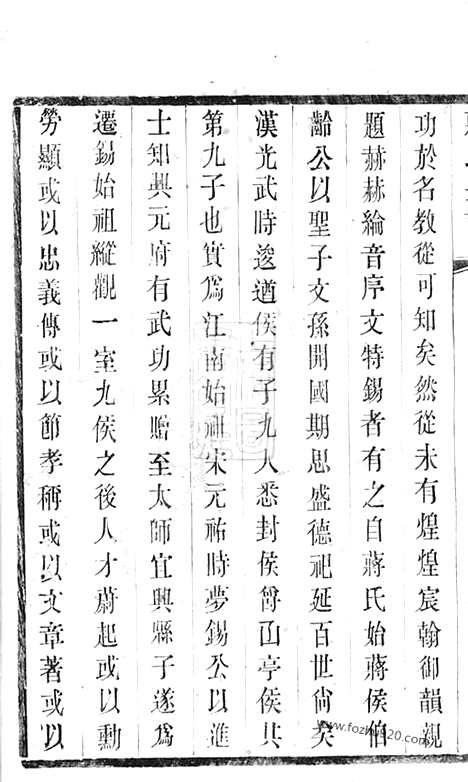 功於名教從可知矣然從未有煌煌宸翰御韻親
題赫赫綸音序文特錫者有之自蔣氏始蔣侯伯
齡公以聖子文孫開國期思盛德祀延百世尙矣
漢光武時逡遒侯有子九人悉封侯曾山亭侯其
第九子也實爲江南始祖宋元祐時夢錫公以進
士知興元府有武功累贈至太師宜興縣子遂爲
遷錫始祖縱觀一室九侯之後人才蔚起或以勳
勞顯或以忠義傳或以節孝稱或以文章著或以
www.fozhu920.com